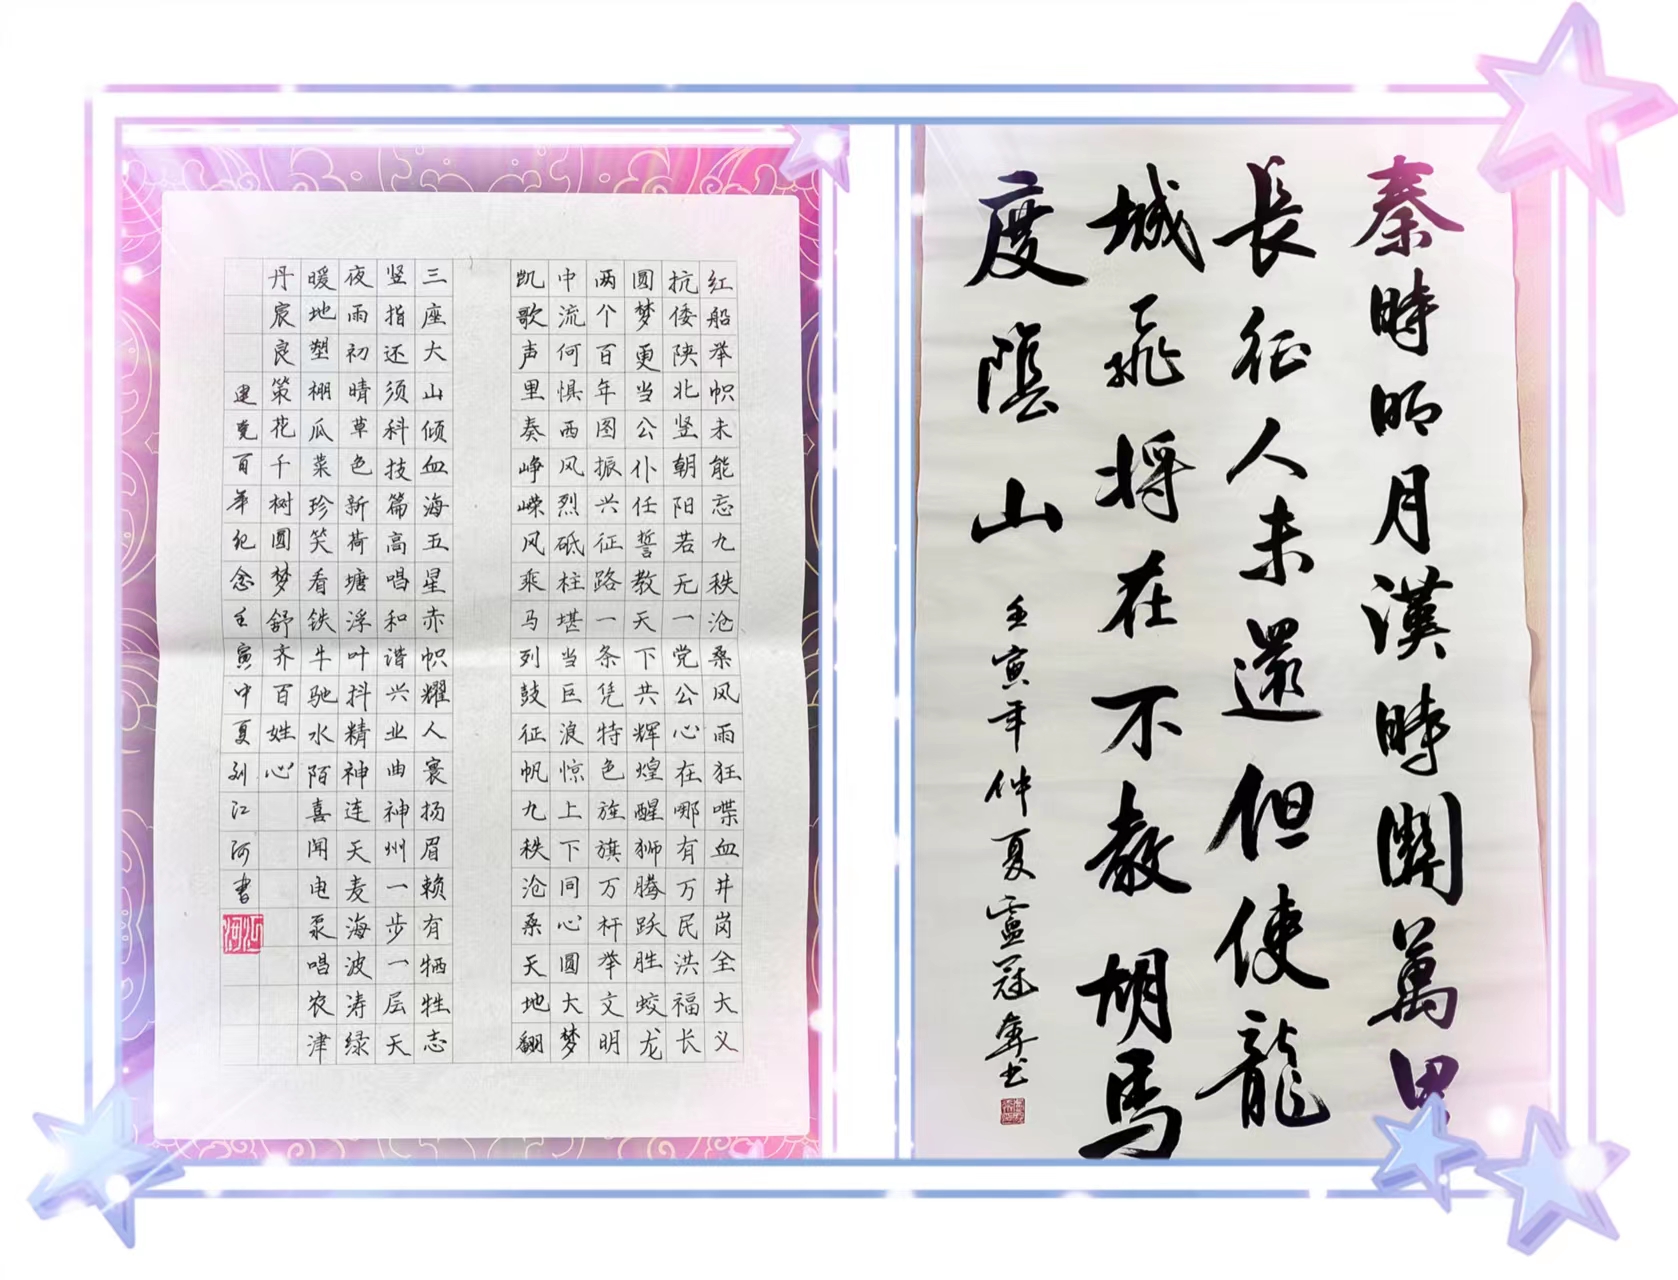 红船举帜未能忘九秩沧桑风雨狂喋血井岗全大义
抗倭陕北竖朝阳若无一党公心在哪有万民洪福长
圆梦更当公仆任誓教天下共辉煌醒狮腾跃胜蛟龙
两个百年图振兴征路一条凭特色旌旗万杆举文明
中流何惧西风烈砥柱堪当巨浪惊上下同心圆大梦
凯歌声里奏峥嵘风乘马列鼓征帆九秩沧桑天地翻
三座大山倾血海五星赤帜耀人寰扬眉赖有牺牲志
竖指还须科技篇高唱和谐兴业曲神州一步一层天
夜雨初晴草色新荷塘浮叶抖精神连天麦海波涛绿
暖地塑棚瓜菜珍笑看铁牛驰水陌喜闻电泵唱农津
丹宸良策花千树圆梦舒齐百姓心
建党百年纪念壬寅中夏刘江河书
江河
秦時明月漢時關萬里
長征人未還但使龍
城飛將在不教胡馬
度陰山
壬寅年仲夏盧冠年书